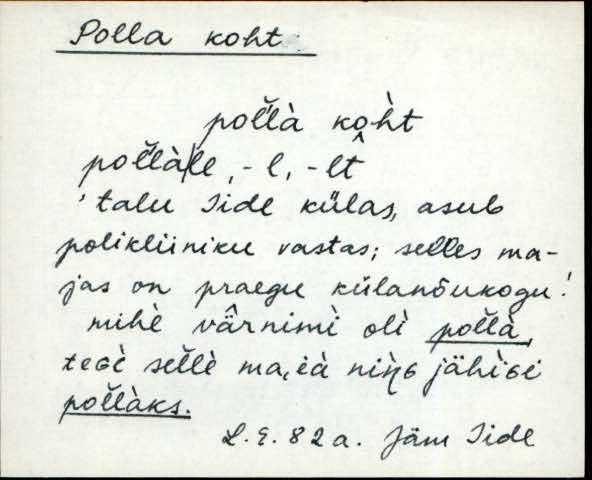 Polla koht
pol̆l̆à ko̭h̀t
pol̆l̆à|le, -l, -lt
'talu Iide külas, asub
polikliiniku vastas; selles ma-
jas on praegu külanõukogu.'
mihè vâ̭rnimì olì pol̆l̆à,
teGè sel̆l̆è ma,ià niŋ̀G jähìGi
pol̆l̆àks.
L.E. 82a. Jäm Iide